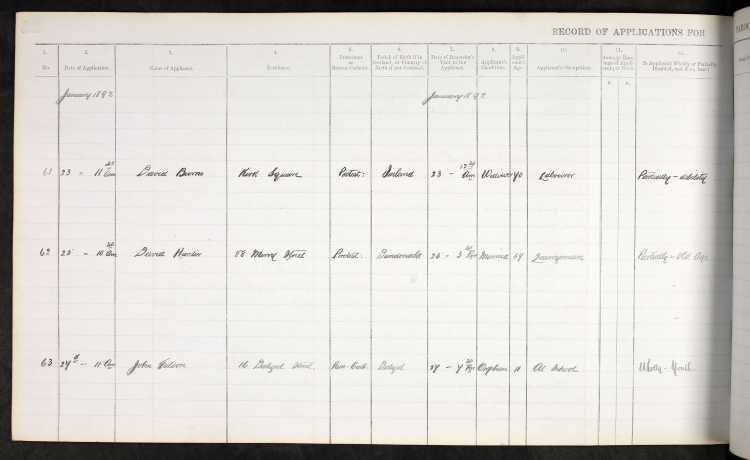 RECORD OF APPLICATIONS FOR
1. 2. 3. 4. 5. 6. 7. 8. 9. 10. 11. 12.
No. Date of Application. Name of Applicant. Residence. Protestant or Roman Catholic. Parish of Birth if in Scotland, or Country of Birth if not Scotland. Date of Inspector's Visit to the Applicant. Applicant's Condition. Applicant's Age. Applicant's Occupation. Is Applicant Wholly or Partially Disabled, and if so, how?
January 1892 January 1892
61 23 - 11 am David Burns Kirk Square Protest: Ireland 23 - 12 am Widower 70 Labourer Partially - debility
62 25 - 10 am David Hunter Street Protest: Dundonald 25 - 3 pm Married 69 Journeyman Partially - Old Age
63 27 - 11 am John Wilson 16 Street Rom. Cath. 27 - 7 pm Orphan 11 At School Wholly - Youth